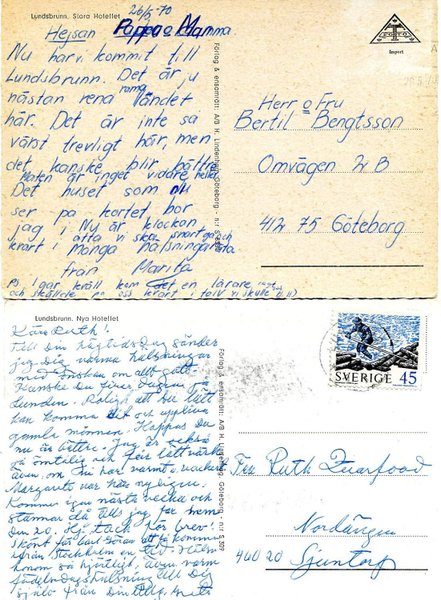 Lundsbrunn. Stora Hotellet
26/5 -70
Hejsan Pappa o Mamma.
Nu har vi kommit till
Lundsbrunn. Det är ju
nästan rena rama landet
här. Det är inte så
värst trevligt här, men
det kanske blir bättre.
Maten är inget vidare heller
Det huset som ni
ser på kortet bor
jag i Nu är klockan
åtta vi ska snart gå och
många hälsningar
från
Marita
PS I går kväll kom det en lärare
och skällde på oss
Förlag & ensamrätt: A/B H. Lindenhag, Göteborg. n:r S
Import
Herr o Fru
Bertil Bengtsson
Omvägen 2 B
412 75 Göteborg
Lundsbrunn. Nya Hotellet
Kära Ruth!
Till Din högtidsdag sänder
jag Dig varma hälsningar
med önskan om allt gott.
Kanske Du firar dagen i
Lunden. Roligt att Du lätt
kan komma dit och uppleva
gamla minnen. Hoppas Du
nu är bättre. Jag är också
så ömtålig och för lätt
även om
Margareta var här nyligen.
Kommer igen nästa vecka och
stannar då tills jag far hem
den 20. Hj. tack för brev!
Skönt för Carl Göran att få komma
ifrån Stockholm en tid. Hälsa
honom så hjärtligt, även varm
födelsedagshälsning till Dig
själv från Din
Förlag & ensamrätt: A/B H. Lindenhag, Göteborg. n:r S 509
SVERIGE 45
Fru Ruth Quarfood
Nordängen
460 20 Sjuntorp